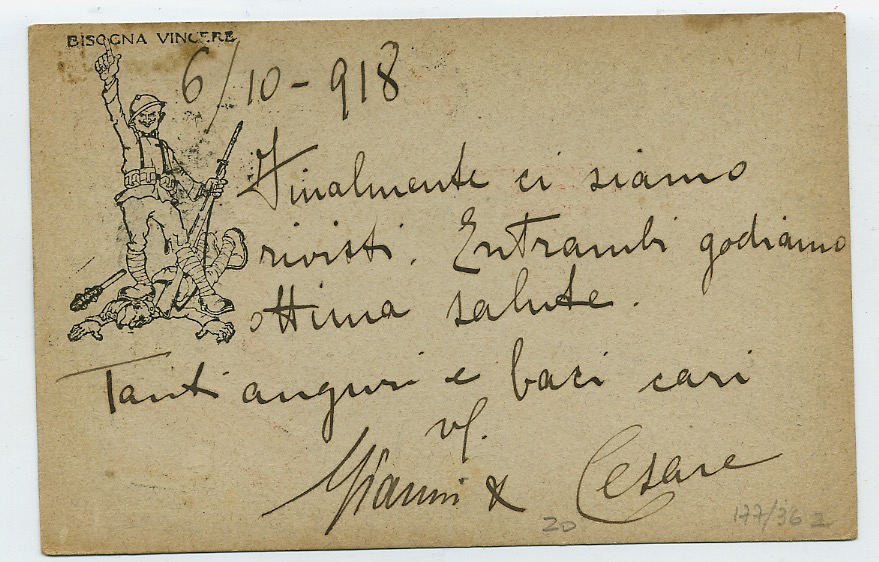 BISOGNA VINCERE
6/10-918
Finalmente ci siamo
rivisti. Entrambi godiamo
ottima salute.
Tanti auguri e baci cari
vs.
Gianni & Cesare
20
177/36 2